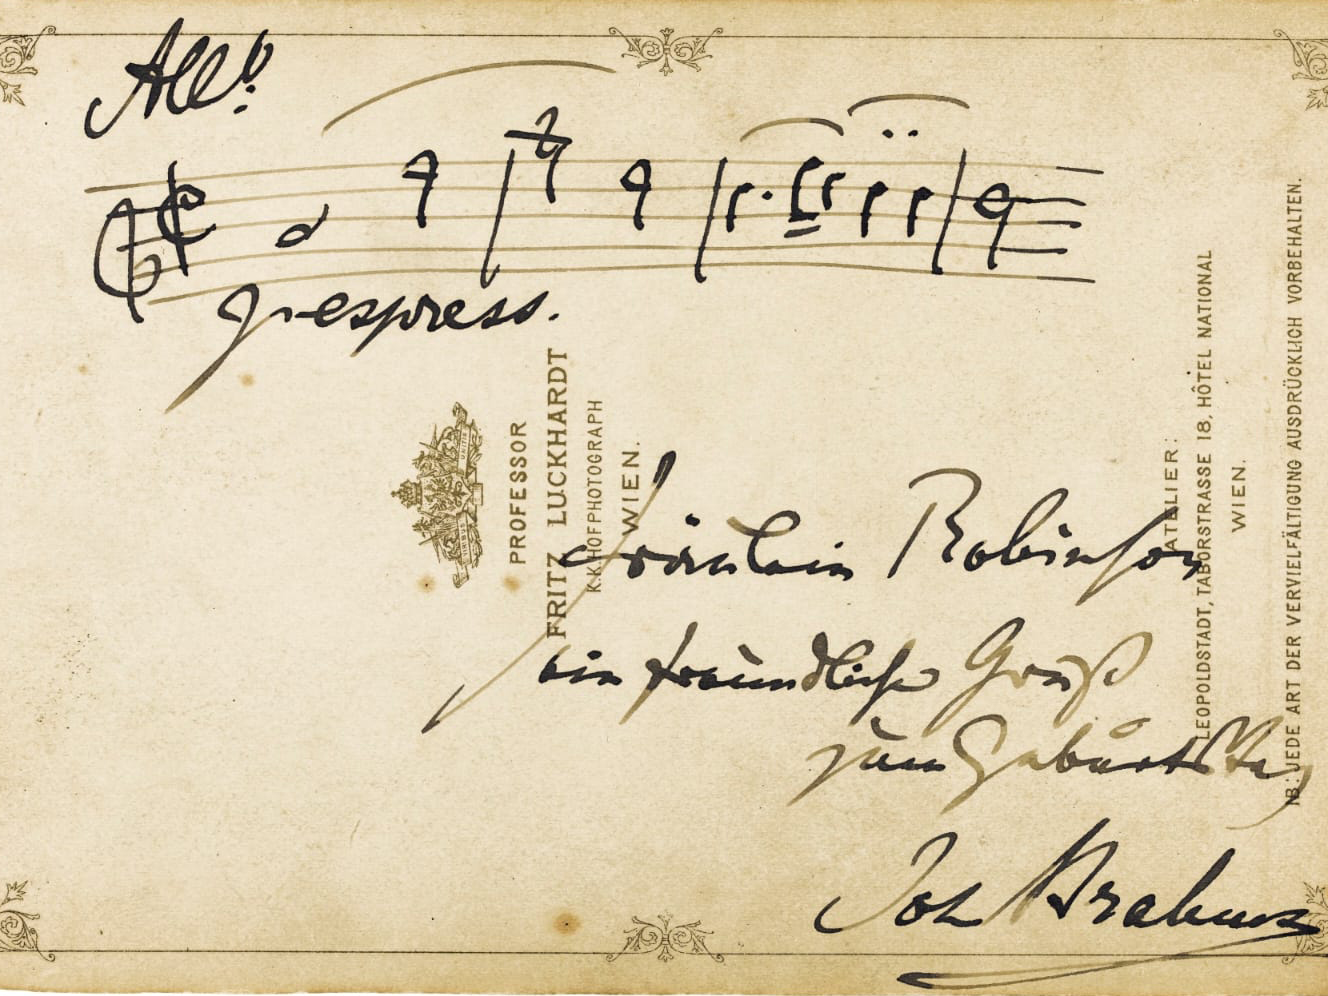 Allo.
p espress.
PROFESSOR
FRITZ LUCKHARDT
K.K. HOFPHOTOGRAPH
WIEN.
Fräulein Robinson
ein freundlicher Gruß
zum Geburtstag
Joh Brahms
ATELIER:
LEOPOLDSTADT, TABORSTRASSE 18, HÔTEL NATIONAL
WIEN.
NB: JEDE ART DER VERVIELFÄLTIGUNG AUSDRÜCKLICH VORBEHALTEN.